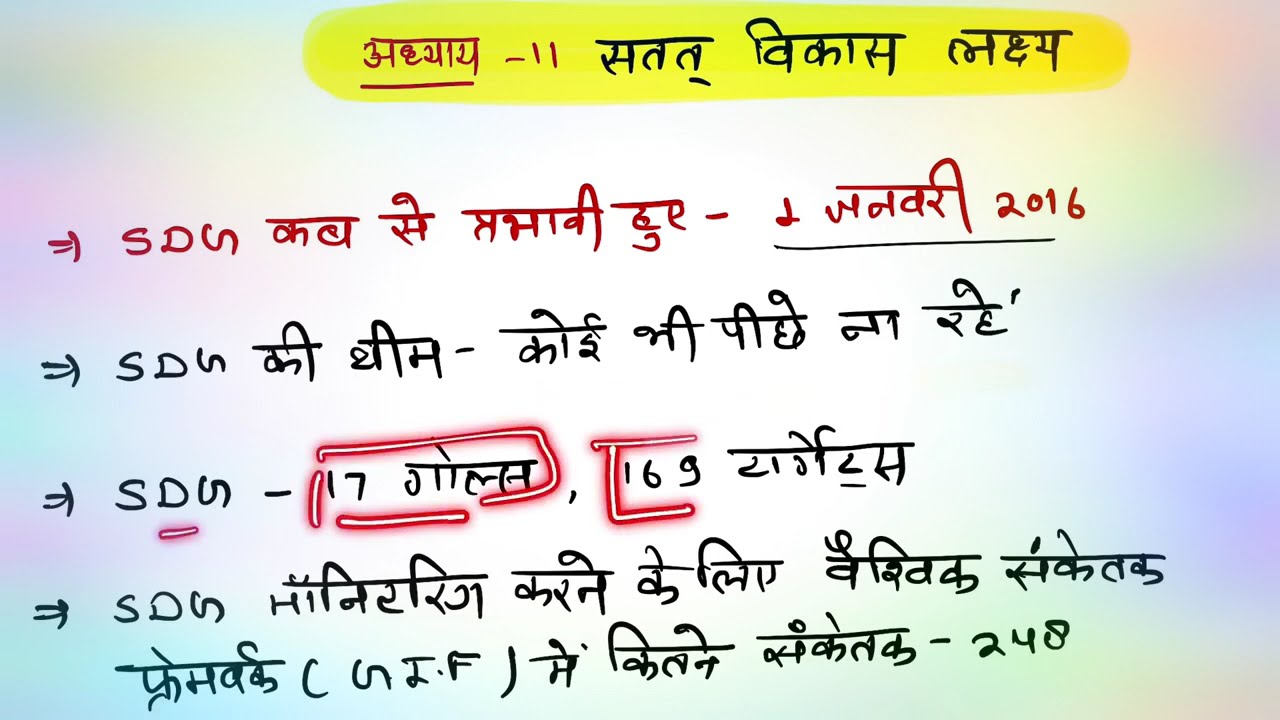 अध्याय -11 सतत् विकास लक्ष्य
⇒ SDG कब से प्रभावी हुए - 1 जनवरी 2016
⇒ SDG की थीम - कोई भी पीछे ना रहें
⇒ SDG - 17 गोल्स, 169 टार्गेट्स
⇒ SDG मॉनिटरिंग करने के लिए वैश्विक संकेतक
फ्रेमवर्क (G.I.F) में कितने संकेतक - 248